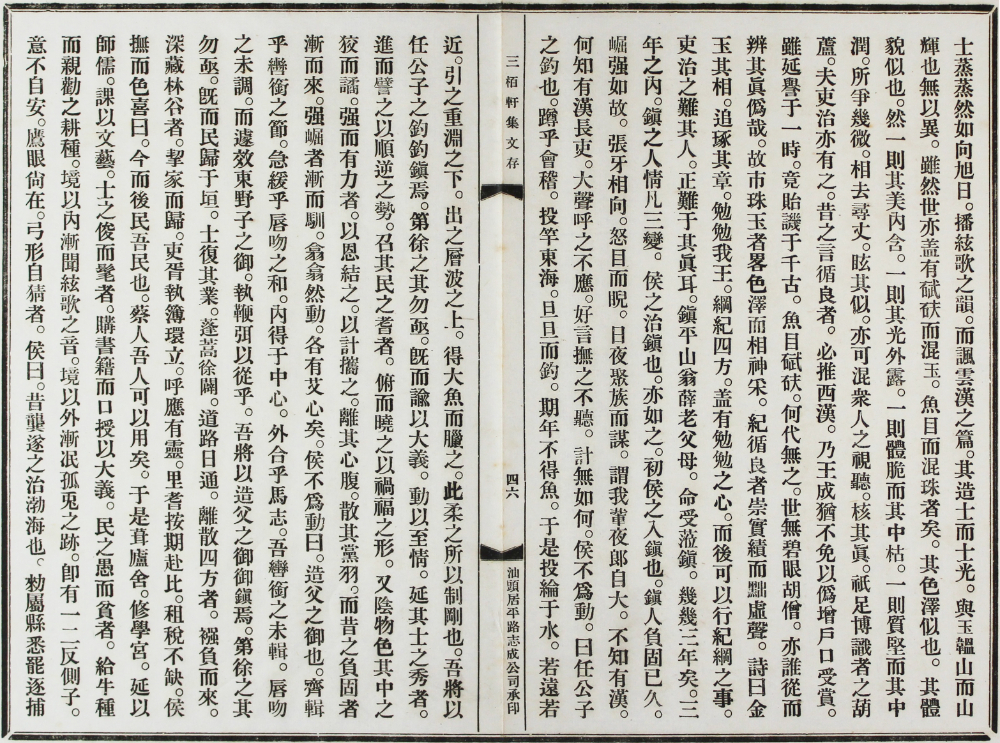 士蒸蒸然如向旭日。播絃歌之韻。而諷雲漢之篇。其造士而士光。與玉韞山而山
輝也無以異。雖然世亦盖有碔砆而混玉。魚目而混珠者矣。其色澤似也。其體
貌似也。然一則其美內含。一則其光外露。一則體脆而其中枯。一則質堅而其中
潤。所爭幾微。相去尋丈。眩其似。亦可混衆人之視聽。核其眞。祇足博識者之葫
蘆。夫吏治亦有之。昔之言循良者。必推西漢。乃王成猶不免以僞增戶口受賞。
雖延譽于一時。竟貽譏于千古。魚目碔砆。何代無之。世無碧眼胡僧。亦誰從而
辨其眞僞哉。故市珠玉者畧色澤而相神采。紀循良者崇實績而黜虛聲。詩曰金
玉其相。追琢其章。勉勉我王。綱紀四方。盖有勉勉之心。而後可以行紀綱之事。
吏治之難其人。正難于其眞耳。鎭平山翁薛老父母。命受涖鎭。幾幾三年矣。三
年之內。鎭之人情凡三變。侯之治鎭也。亦如之。初侯之入鎭也。鎭人負固已久。
崛强如故。張牙相向。怒目而睨。日夜聚族而謀。謂我輩夜郞自大。不知有漢。
何知有漢長吏。大聲呼之不應。好言撫之不聽。計無如何。侯不爲動。曰任公子
之釣也。蹲乎會稽。投竿東海。旦旦而釣。期年不得魚。于是投綸于水。若遠若
三栢軒集文存
四六
汕頭居平路志成公司承印
近。引之重淵之下。出之層波之上。得大魚而臘之。此柔之所以制剛也。吾將以
任公子之釣釣鎭焉。第徐之其勿亟。旣而諭以大義。動以至情。延其士之秀者。
進而譬之以順逆之勢。召其民之耆者。俯而曉之以禍福之形。又陰物色其中之
狡而譎。强而有力者。以恩結之。以計攜之。離其心腹。散其黨羽。而昔之負固者
漸而來。强崛者漸而馴。翕翕然動。各有艾心矣。侯不爲動曰。造父之御也。齊輯
乎轡銜之節。急緩乎唇吻之和。內得于中心。外合乎馬志。吾轡銜之未輯。唇吻
之未調。而遽效東野子之御。執鞭弭以從乎。吾將以造父之御御鎭焉。第徐之其
勿亟。旣而民歸于垣。士復其業。蓬蒿徐闢。道路日通。離散四方者。襁負而來。
深藏林谷者。挈家而歸。吏胥執簿環立。呼應有靈。里耆按期赴比。租稅不缺。侯
撫而色喜曰。今而後民吾民也。蔡人吾人可以用矣。于是葺廬舍。修學宮。延以
師儒。課以文藝。士之俊而髦者。購書籍而口授以大義。民之愚而貧者。給牛種
而親勸之耕種。境以內漸聞絃歌之音。境以外漸泯孤兎之跡。卽有一二反側子。
意不自安。鷹眼尙在。弓形自猜者。侯曰。昔龔遂之治渤海也。勑屬縣悉罷逐捕